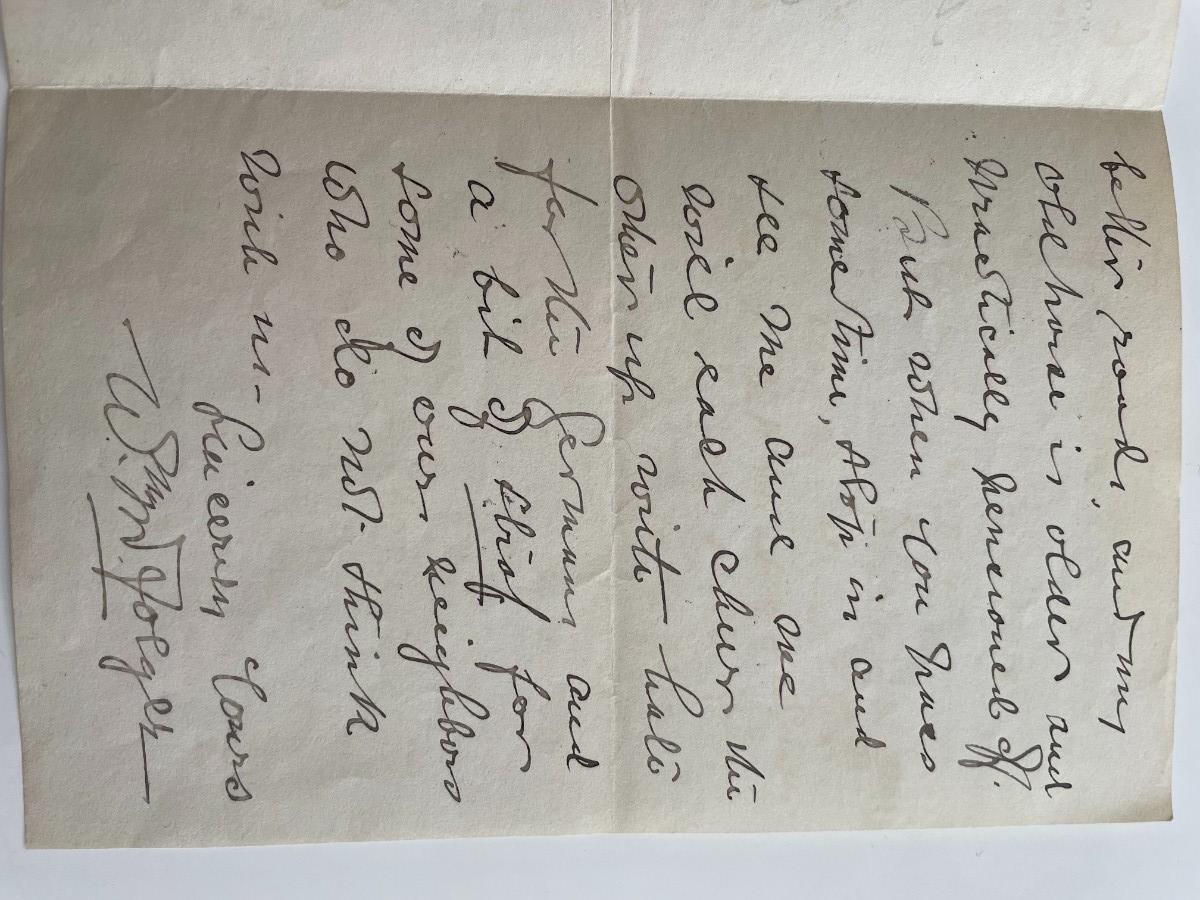 better roads, and my
old horse is older and
practically pensioned off.
But when you have
some time, stop in and
see me and we
will each cheer the
other up with hate
for the Germans and
a bit of pity for
some of our neighbors
who do not think
with us—
Sincerely Yours
W. M. Folger